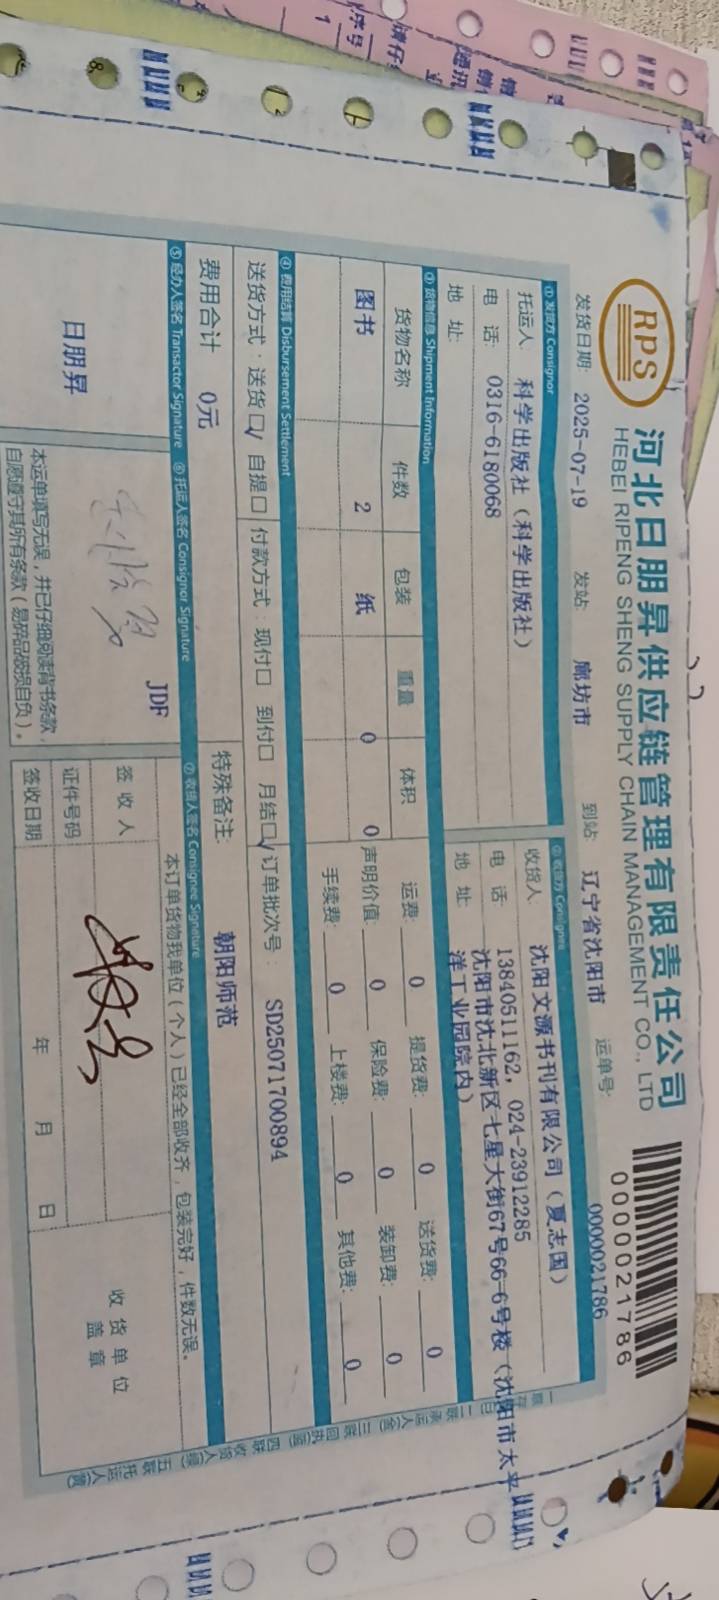 RPS
河北日朋昇供应链管理有限责任公司
HEBEI RIPENG SHENG SUPPLY CHAIN MANAGEMENT CO., LTD
0000021786
发货日期: 2025-07-19 发站: 廊坊市 到站: 辽宁省沈阳市 运单号: 0000021786
① 发货方 Consignor
托运人: 科学出版社（科学出版社）
电 话: 0316-6180068
地 址:
② 收货方 Consignee
收货人: 沈阳文源书刊有限公司（夏志国）
电 话: 13840511162, 024-23912285
地 址: 沈阳市沈北新区七星大街67号66-6号楼（沈阳市太平
洋工业园院内）
③ 货物信息 Shipment Information
货物名称 件数 包装 重量 体积
图书 2 纸 0 0
运费: 0 提货费: 0 送货费: 0
声明价值: 0 保险费: 0 装卸费: 0
手续费: 0 上楼费: 0 其他费: 0
④ 费用结算 Disbursement Settlement
送货方式：送货☑ 自提□ 付款方式：现付□ 到付□ 月结☑ 订单批次号： SD25071700894
费用合计 0元 特殊备注: 朝阳师范
⑤ 经办人签名 Transactor Signature ⑥ 托运人签名 Consignor Signature ⑦ 收货人签名 Consignee Signature
日朋昇
JDF
本运单填写无误，并已仔细阅读背书条款，
自愿遵守其所有条款（易碎品破损自负）。
本订单货物我单位（个人）已经全部收齐，包装完好，件数无误。
签 收 人
证件号码
签收日期 年 月 日
收 货 单 位
盖 章